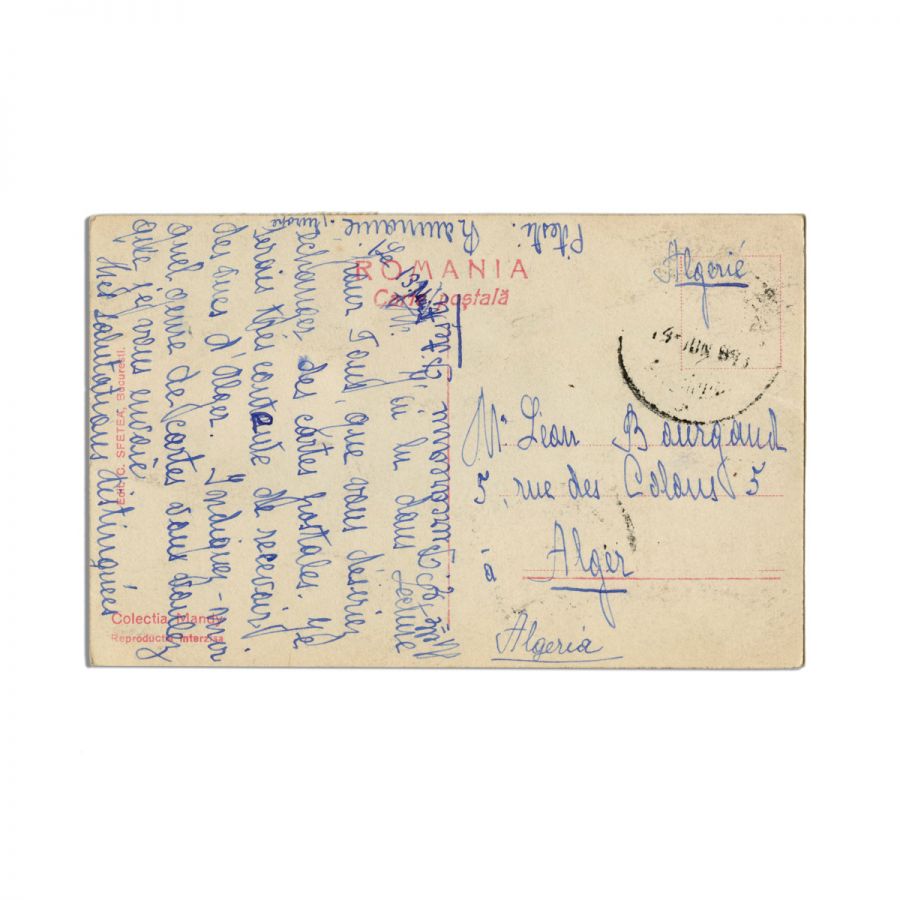 ROMANIA
Carte poştală
Algerié
Mr Léon Bourgaud
5, rue des Colons 5
à Alger
Algeria
Pitesti. Roumanie
Europe
J'ai lu dans Lecture
pour Tous que vous désiriez
échanger des cartes postales. Je
serais très contente de recevoir
des vues d'Alger. Indiquez-moi
quel genre de cartes vous voulez
que je vous envoie
Mes salutations distinguées
Edit. C. SFETEA, Bucuresti.
Colectia Mandy
Reproductia interzisa